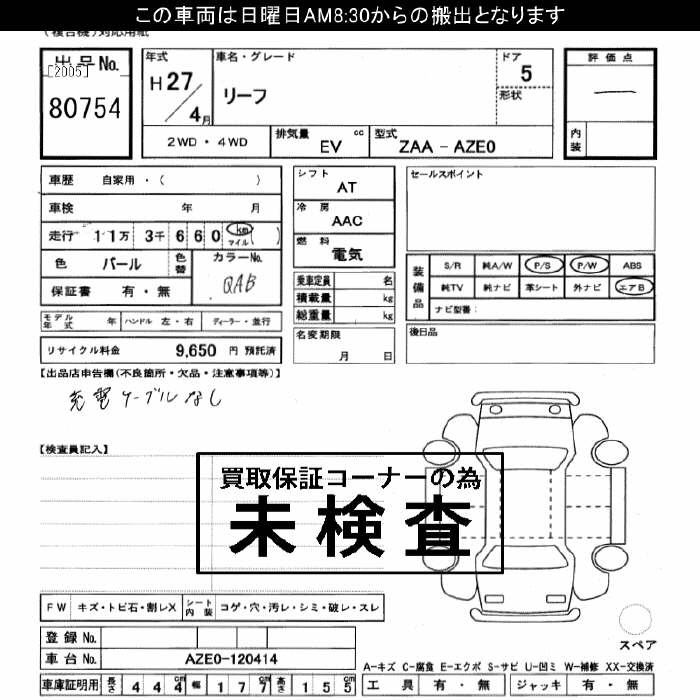 この車両は日曜日AM8:30からの搬出となります
(複合機)対応用紙
出品No.
[2005]
80754
年式
H27/4月
車名・グレード
リーフ
ドア
5
形状
評価点
―
内装
2WD・4WD
排気量 cc
EV
型式
ZAA - AZE0
車歴 自家用・( )
車検 年 月
走行 11万 3千660 km マイル ( )
色 パール
色替
カラーNo.
QAB
保証書 有・無
モデル年式 年 ハンドル 左・右 ディーラー・並行
リサイクル料金 9,650 円 預託済
シフト
AT
冷房
AAC
燃料
電気
乗車定員 名
積載量 kg
総重量 kg
名変期限
月 日
セールスポイント
装備品
S/R 純A/W P/S P/W ABS
純TV 純ナビ 革シート 外ナビ エアB
ナビ型番:
後日品
【出品店申告欄(不良箇所・欠品・注意事項等)】
充電ケーブルなし
【検査員記入】
買取保証コーナーの為
未検査
FW キズ・トビ石・割レX シート内装 コゲ・穴・汚レ・シミ・破レ・スレ
登録No.
車台No. AZE0-120414
車庫証明用 長さ 444cm 幅 177cm 高さ 155cm
スペア
A-キズ C-腐食 E-エクボ S-サビ U-凹ミ W-補修 XX-交換済
工具 有・無 ジャッキ 有・無